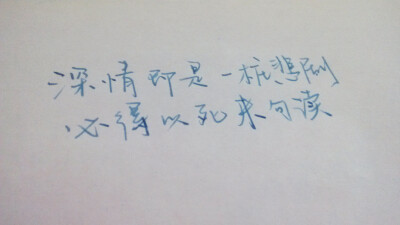 深情即是一桩悲剧
必得以死来句读